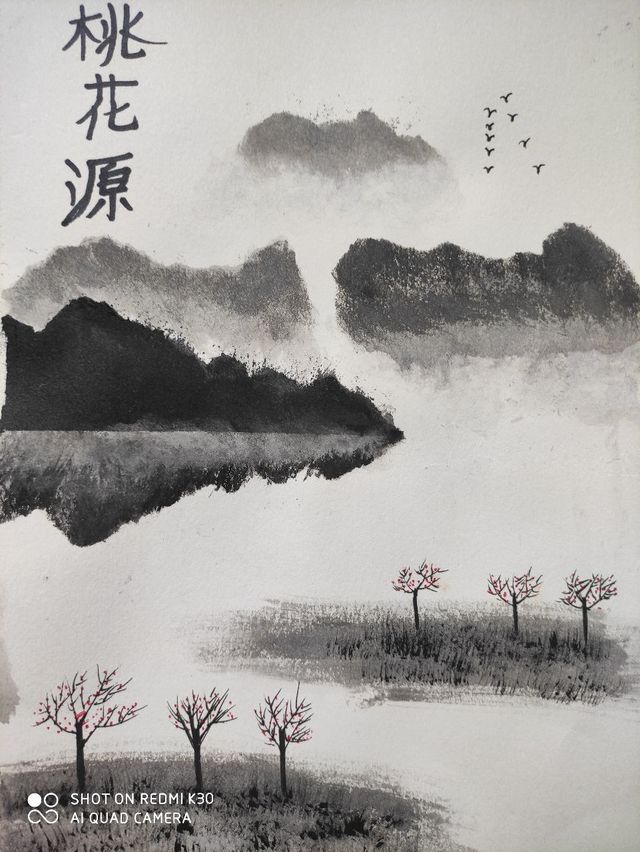 桃花源
SHOT ON REDMI K30
AI QUAD CAMERA